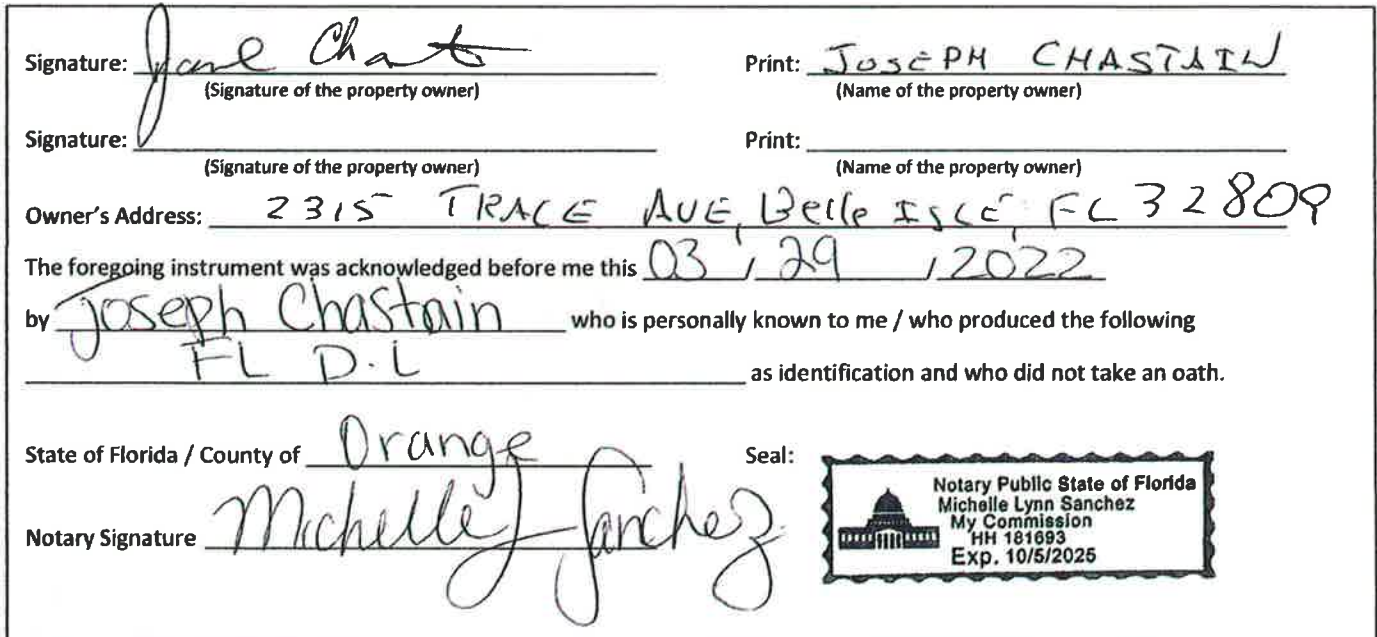 Signature: Print: JOSEPH CHASTAIN
(Signature of the property owner) (Name of the property owner)
Signature: Print:
(Signature of the property owner) (Name of the property owner)
Owner's Address: 2315 TRACE AVE, Belle ISLE, FL 32809
The foregoing instrument was acknowledged before me this 03 / 29 , 2022
by Joseph Chastain who is personally known to me / who produced the following
FL D.L as identification and who did not take an oath.
State of Florida / County of Orange Seal:
Notary Signature Michelle L Sanchez
Notary Public State of Florida
Michelle Lynn Sanchez
My Commission
HH 181693
Exp. 10/5/2025